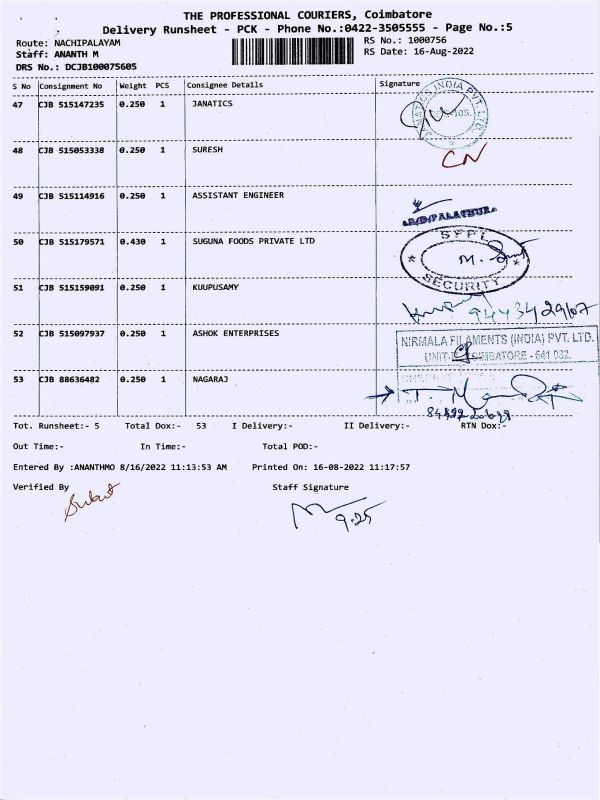 THE PROFESSIONAL COURIERS, Coimbatore
Delivery Runsheet - PCK - Phone No.:0422-3505555 - Page No.:5
Route: NACHIPALAYAM
RS No.: 1000756
Staff: ANANTH M
RS Date: 16-Aug-2022
DRS No.: DCJB100075605
S No Consignment No Weight PCS Consignee Details Signature
47 CJB 515147235 0.250 1 JANATICS
48 CJB 515053338 0.250 1 SURESH
CN
49 CJB 515114916 0.250 1 ASSISTANT ENGINEER
50 CJB 515179571 0.430 1 SUGUNA FOODS PRIVATE LTD
SFPL
SECURITY
51 CJB 515159091 0.250 1 KUUPUSAMY
9443429167
52 CJB 515097937 0.250 1 ASHOK ENTERPRISES
NIRMALA FILAMENTS (INDIA) PVT. LTD.
53 CJB 88636482 0.250 1 NAGARAJ
Tot. Runsheet:- 5 Total Dox:- 53 I Delivery:- II Delivery:- RTN Dox:-
Out Time:- In Time:- Total POD:-
Entered By :ANANTHMO 8/16/2022 11:13:53 AM Printed On: 16-08-2022 11:17:57
Verified By Staff Signature
9.25